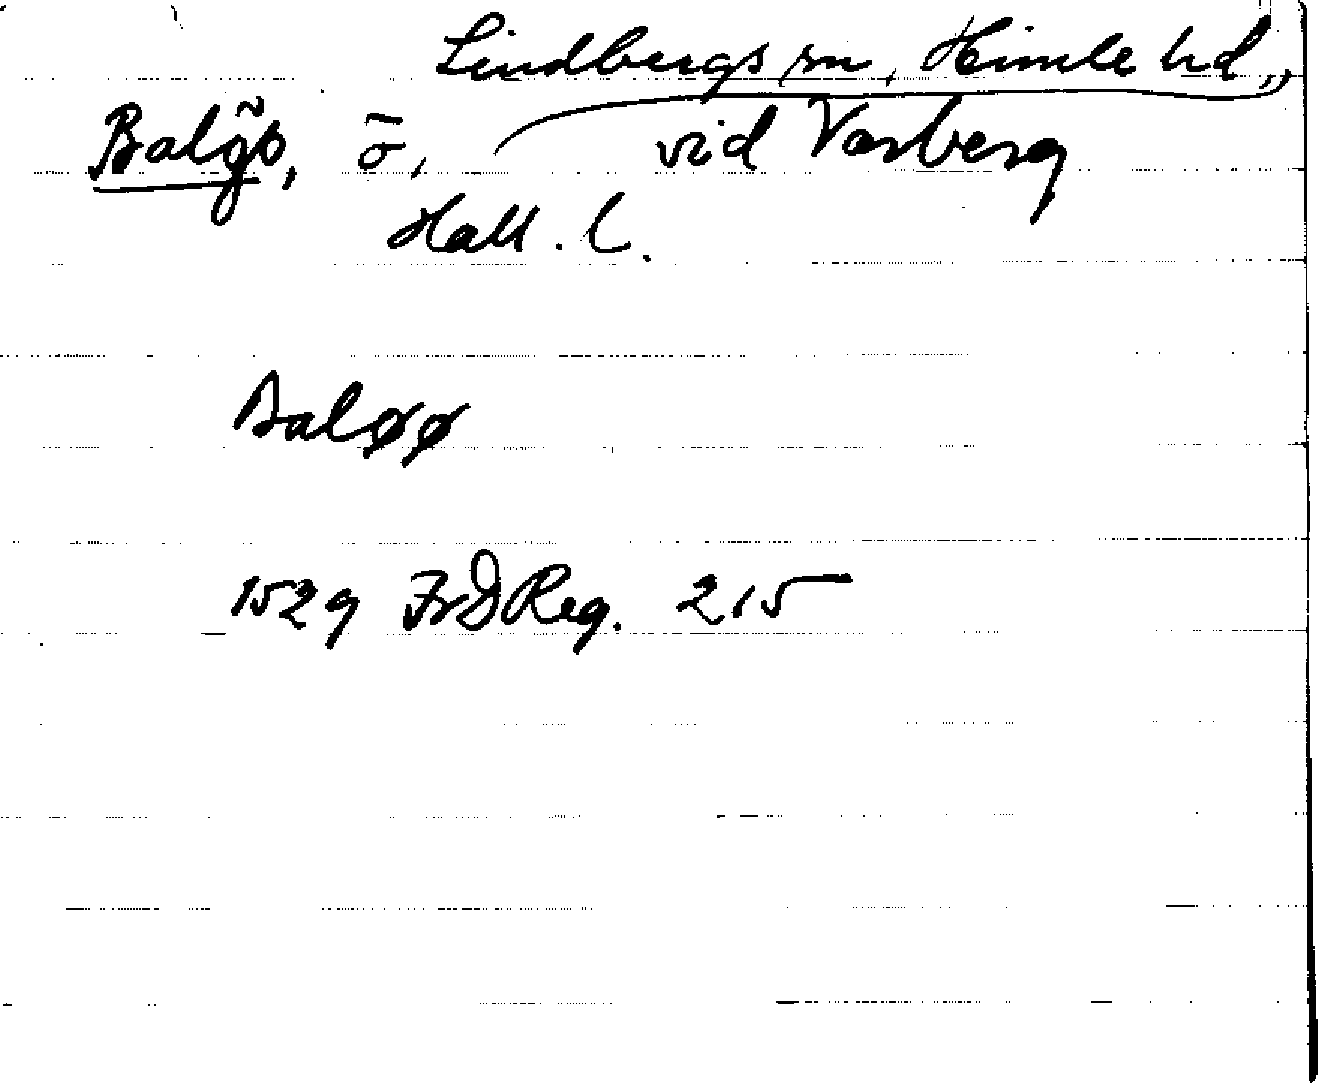 Lindbergs sn, Himle hd,
Balgö, ö, vid Varberg
Hall. l.
Baløø
1529 FrDReg. 215